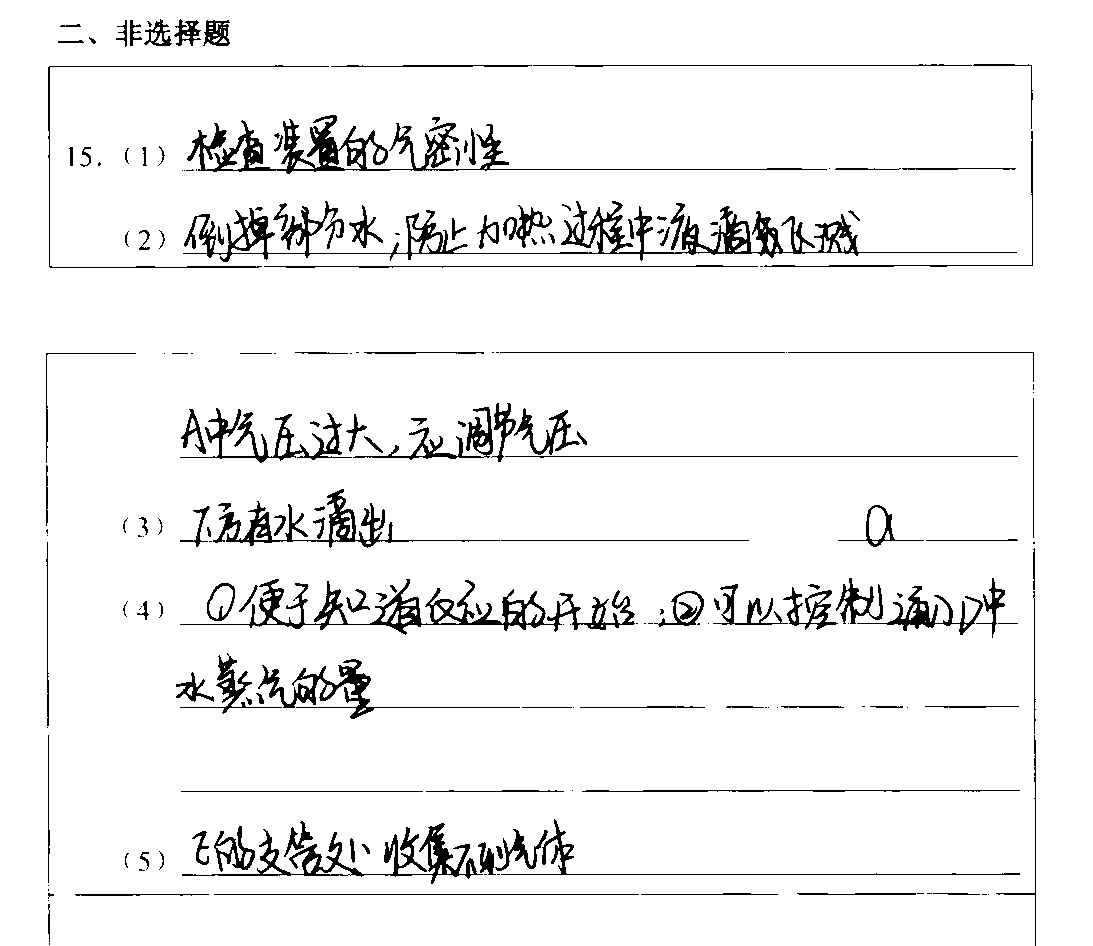 二、非选择题
15.（1）检查装置的气密性
（2）倒掉部分水，防止加热过程中液滴飞溅
A中气压过大，应调节气压
（3）下方有水滴出 a
（4）①便于知道反应的开始；②可以控制通入D中
水蒸气的量
（5）E的支管处收集不到气体